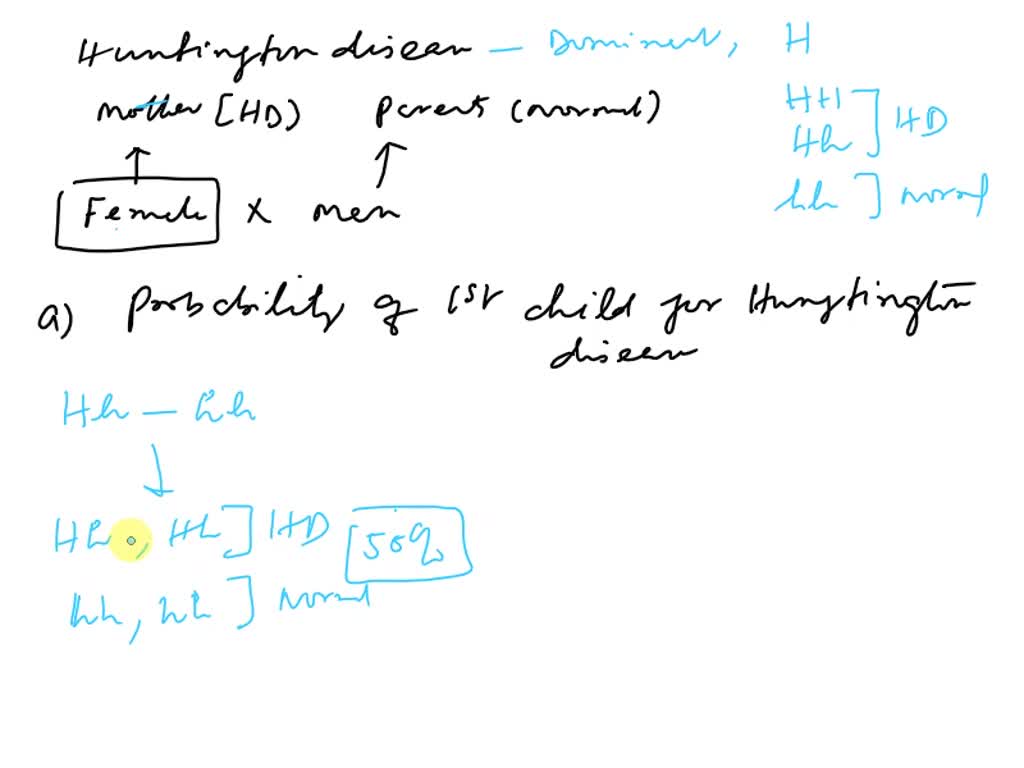 Huntington disease – Dominent, H
Mother [HD) Parents (normal)
HH
Hh ] HD
Female x men
hh ] normal
a) Probability of 1st child for Hungtington
disease
Hh – hh
Hh, Hh ] HD 50%
hh, hh ] normal